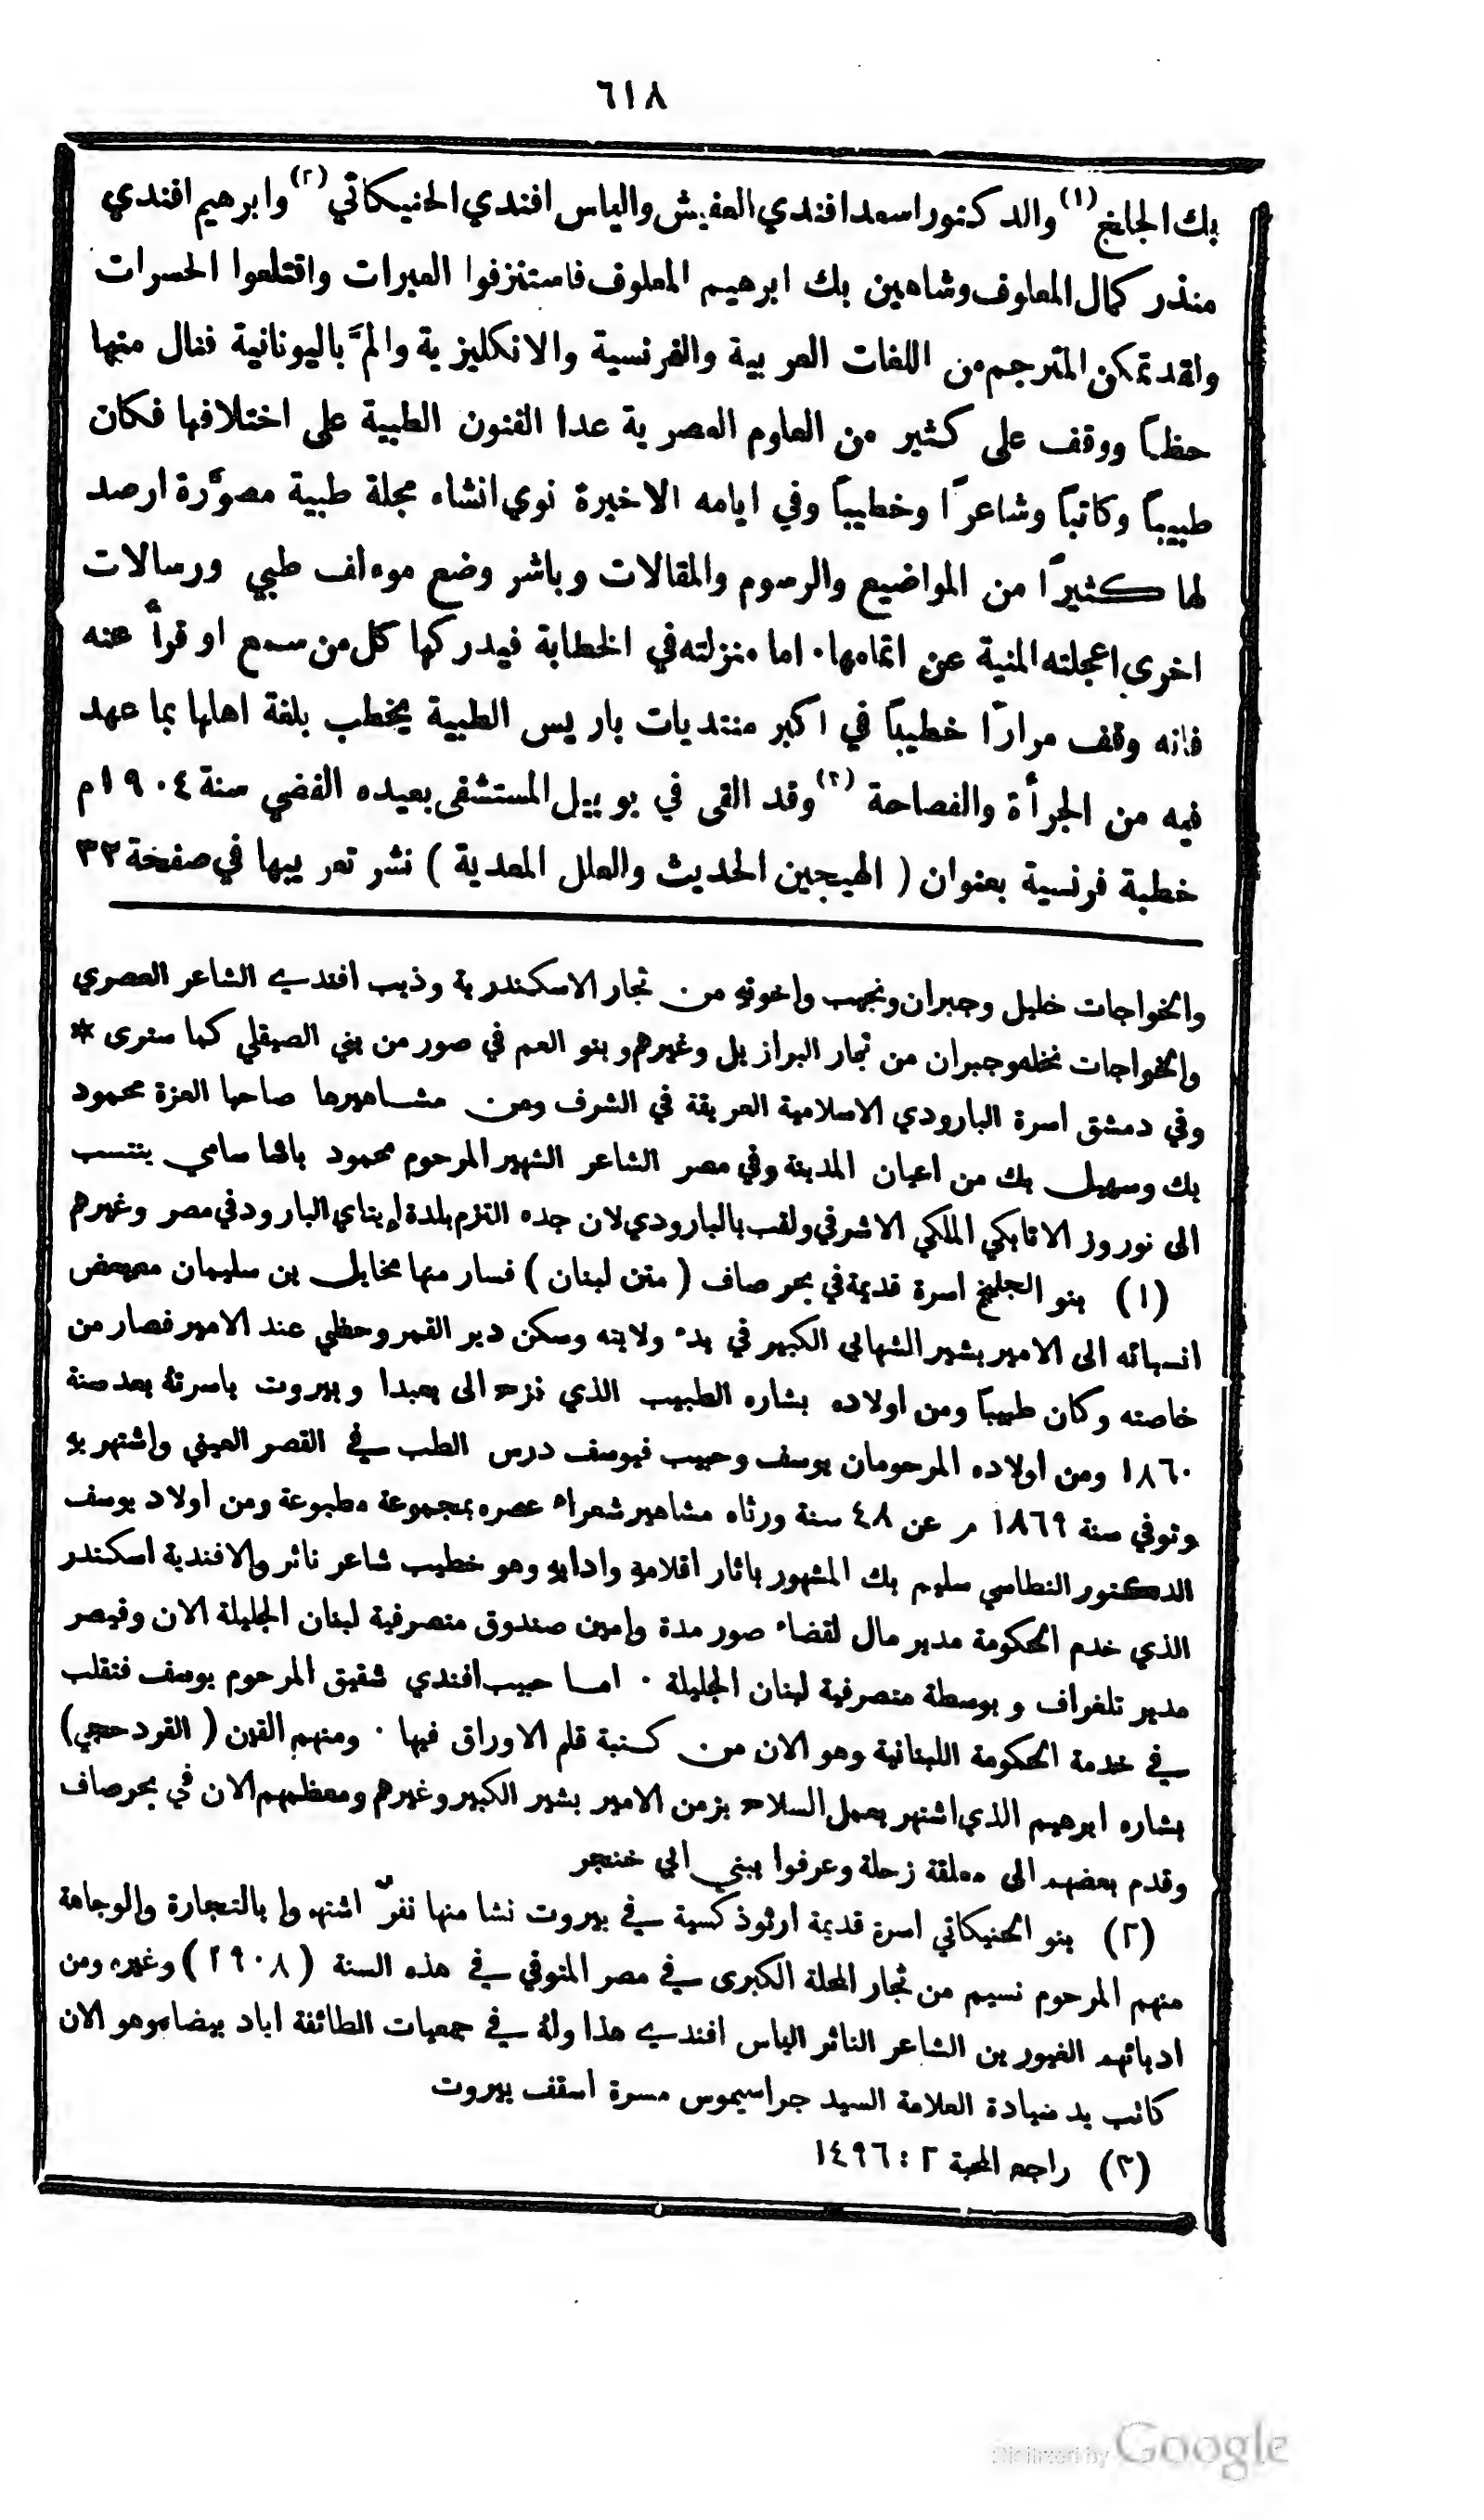 ٦١٨
بك الجلخ (١) والدكتور اسعد افندي العفيش والياس افندي الحنيكاتي (٢) وابرهيم افندي
منذر كمال المعلوف وشاهين بك ابرهيم المعلوف فاستنزفوا العبرات واقتلعوا الحسرات
ولقد تمكن المترجم من اللغات العربية والفرنسية والانكليزية والمَّ باليونانية فنال منها
حظاً ووقف على كثير من العلوم العصرية عدا الفنون الطبية على اختلافها فكان
طبيباً وكاتباً وشاعراً وخطيباً وفي ايامه الاخيرة نوى انشاء مجلة طبية مصوَّرة ارصد
لها كثيراً من المواضيع والرسوم والمقالات وباشر وضع موءلف طبي ورسالات
اخرى اعجلته المنية عن اتمامها . اما منزلته في الخطابة فيدركها كل من سمع او قرأ عنه
فانه وقف مراراً خطيباً في اكبر منتديات باريس الطبية يخطب بلغة اهلها بما عهد
فيه من الجرأة والفصاحة (٣) وقد القى في يوبيل المستشفى بعيده الفضي سنة ١٩٠٤م
خطبة فرنسية بعنوان ( الهيجين الحديث والعلل المعدية ) نشر تعريبها في صفحة ٣٢
والخواجات خليل وجبران ونجيب واخوته من تجار الاسكندرية وذيب افندي الشاعر العصري
والخواجات نخله وجبران من تجار البرازيل وغيرهم وبنو العم في صور من بني الصيقلي كما سترى *
وفي دمشق اسرة البارودي الاسلامية العريقة في الشرف ومن مشاهيرها صاحبا العزة محمود
بك وسهيل بك من اعيان المدينة وفي مصر الشاعر الشهير المرحوم محمود باشا سامي ينتسب
الى نوروز الاتابكي الملكي الاشرفي ولقب بالبارودي لان جده التزم بلدة إيتاي البارود في مصر وغيرهم
(١) بنو الجلخ اسرة قديمة في بحرصاف ( متن لبنان ) فسار منها مخايل بن سليمان مع بعض
انسبائه الى الامير بشير الشهابي الكبير في بدء ولايته وسكن دير القمر وحظي عند الامير فصار من
خاصته وكان طبيباً ومن اولاده بشاره الطبيب الذي نزح الى بعبدا وبيروت باسرته بعد سنة
١٨٦٠ ومن اولاده المرحومان يوسف وحبيب فيوسف درس الطب في القصر العيني واشتهر به
وتوفي سنة ١٨٦٩ م عن ٤٨ سنة ورثاه مشاهير شعراء عصره بمجموعة مطبوعة ومن اولاد يوسف
الدكتور النطاسي سليم بك المشهور باثار اقلامه وادابه وهو خطيب شاعر ناثر والافندية اسكندر
الذي خدم الحكومة مدير مال لقضاء صور مدة وامين صندوق متصرفية لبنان الجليلة الان وقيصر
مدير تلغراف وبوسطة متصرفية لبنان الجليلة . اما حبيب افندي شقيق المرحوم يوسف فتقلب
في خدمة الحكومة اللبنانية وهو الان من كتبة قلم الاوراق فيها . ومنهم القين ( القردحجي )
بشاره ابرهيم الذي اشتهر بعمل السلاح بزمن الامير بشير الكبير وغيرهم ومعظمهم الان في بحرصاف
وقدم بعضهم الى معلقة زحلة وعرفوا ببني ابي خنجر
(٢) بنو الحنيكاتي اسرة قديمة ارثوذكسية في بيروت نشا منها نفرٌ اشتهروا بالتجارة والوجاهة
منهم المرحوم نسيم من تجار المحلة الكبرى في مصر المتوفي في هذه السنة ( ١٩٠٨ ) وغيره ومن
ادبائهم الغيورين الشاعر الناثر الياس افندي هذا وله في جمعيات الطائفة اياد بيضاء وهو الان
كاتب يد سيادة العلامة السيد جراسيموس مسرة اسقف بيروت
(٣) راجع المحبة ٢ : ١٤٩٦
Digitized by Google